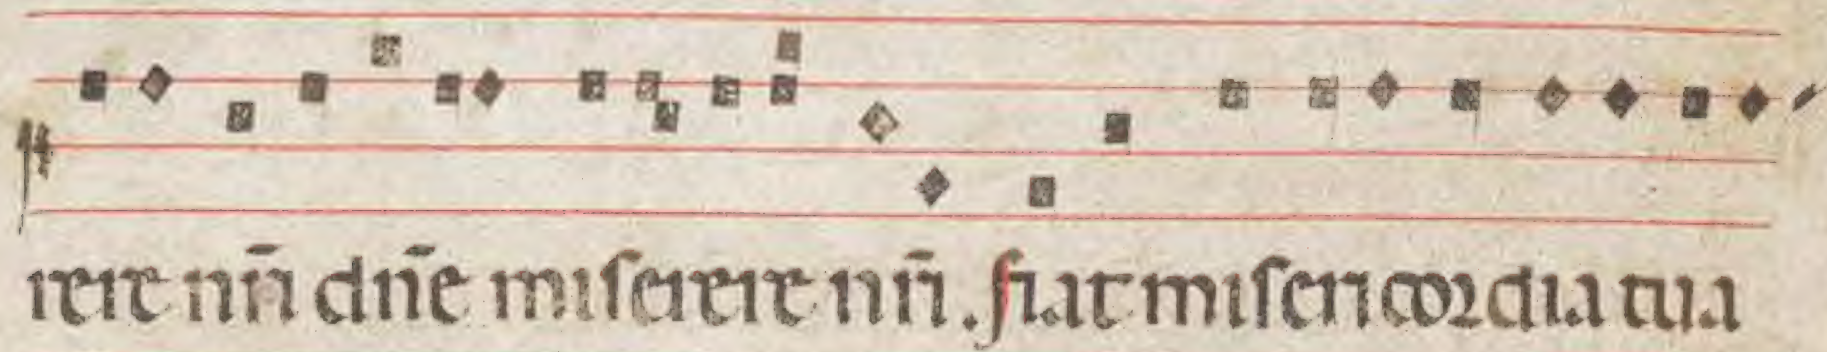 rere nr̄i dn̄e miserere nr̄i. fiat misericordia tua